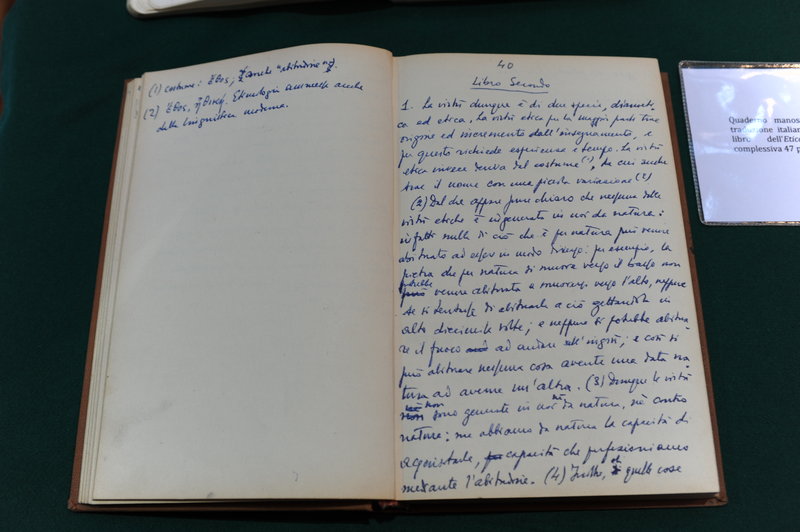 (1) costume: ἔθος; anche "abitudine"
(2) ἔθος, ἠθική. Etimologia ammessa anche
dalla linguistica moderna.
40
Libro Secondo
1. La virtù dunque è di due specie, dianoeti-
ca ed etica. La virtù etica per la maggior parte tiene
origine ed incremento dall'insegnamento, e
per questo richiede esperienza e tempo. La virtù
etica invece deriva dal costume (1), da cui anche
trae il nome con una piccola variazione (2)
(2) Dal che appare pure chiaro che nessuna delle
virtù etiche è ingenerata in noi da natura:
infatti nulla di ciò che è per natura può venire
abituato ad essere in modo diverso: per esempio, la
pietra che per natura si muove verso il basso non
potrebbe venire abituata a muoversi verso l'alto, neppure
se si tentasse di abituarla a ciò gettandola in
alto diecimila volte; e neppure si potrebbe abitua-
re il fuoco ad andare all'ingiù; e così si
può abituare nessuna cosa avente una data na-
tura ad averne un'altra. (3) Dunque le virtù
non sono generate in noi né da natura, né contro
natura: ma abbiamo da natura la capacità di
acquistarle, capacità che perfezioniamo
mediante l'abitudine. (4) Inoltre, di quelle cose
Quaderno manos
traduzione italian
libro dell'Etic
complessiva 47 p